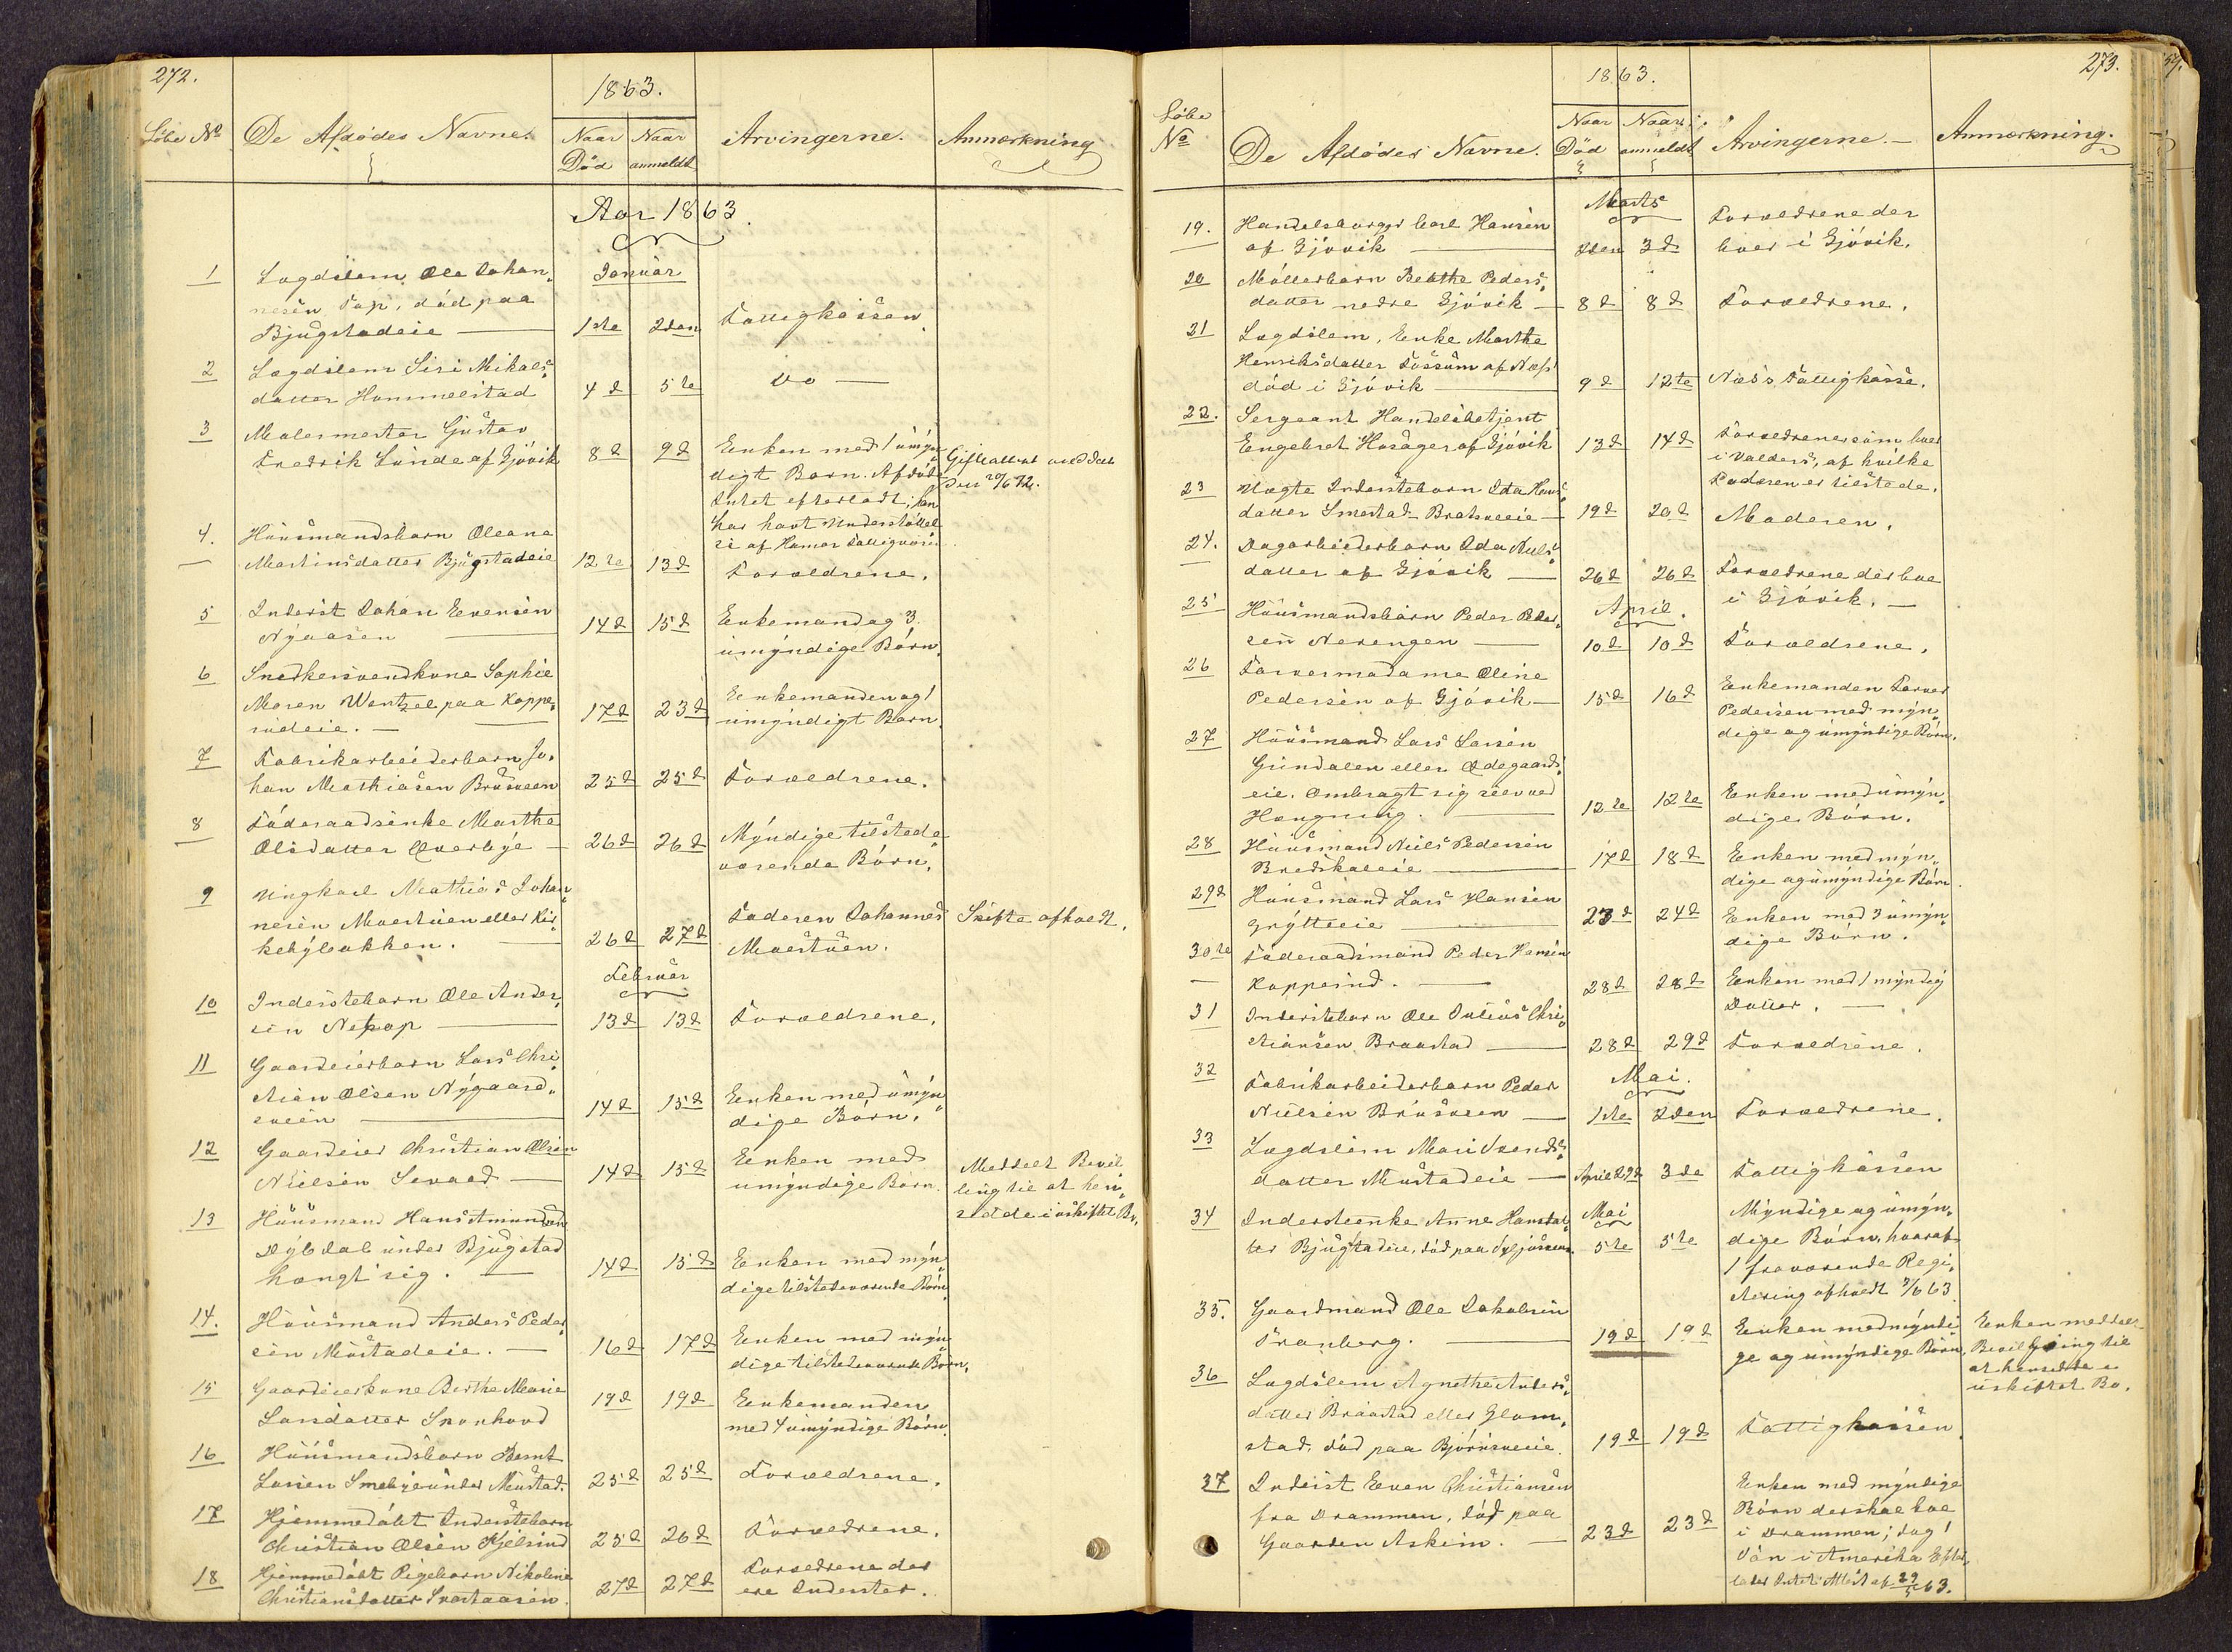 272.
1863.
Löbe No
De Afdödes Navne.
Naar Död
Naar anmeldt
Arvingerne.
Anmærkning
Aar 1863.
Januar
1
Lægdslem Ole Johan„
nesen Top, död paa
Bjugstadeie
1ste
2den
Fattigkassen
2
Lægdslem Siri Mikaels„
datter Hommelstad
4d
5te
do
3
Malermester Gustav
Fredrik Lunde af Gjövik
8d
9d
Enken med 1 umyn„
digt Barn. Afdöde
Intet efterladt; han
har havt Understöttel
se af Hamar Fattigvæsen
Gifteattest
4.
Huusmandsbarn Oleana
Martinsdatter Bjugstadeie
12te
13d
Forældrene.
5
Inderst Johan Evensen
Nyaasen
14d
15d
Enkemand og 3
umyndige Börn.
6
Snedkersvendkone Sophie
Maren Wentzel paa Koppe„
rudeie.
17d
23d
Enkemanden og 1
umyndigt Barn.
7
Fabrikarbeiderbarn Jo„
han Mathiasen Brusveen
25d
25d
Forældrene.
8
Föderaadsenke Marthe
Olsdatter Överbye
26d
26d
Myndige tilstede„
værende Börn.
9
Ungkarl Mathias Johan„
nesen Moestuen eller Kir„
kebybakken.
26d
27d
Faderen Johannes
Moestuen.
Skifte afholdt.
Februar
10
Inderstebarn Ole Ander„
sen Neppop
13d
13d
Forældrene.
11
Gaardeierbarn Lars Chri„
stian Olsen Nygaard„
sveen
14d
15d
Enken med umyn„
dige Börn.
12
Gaardeier Christian Olsen
Nielsen Sevaad
14d
15d
Enken med
umyndige Barn.
Meddelt Bevil
ling til at hen„
sidde i uskiftet Bo.
13
Huusmand Hans Amundsen
Dybdal under Bjugstad
hængt sig.
14d
15d
Enken med myn„
dige tilstedeværende Börn.
14.
Huusmand Anders Peder„
sen Mustadeie.
16d
17d
Enken med myn„
dige tilstedeværende Börn.
15
Gaardeierkone Berthe Marie
Larsdatter Skonhovd
19d
19d
Enkemanden
med 4 umyndige Börn.
16
Huusmandsbarn Bernt
Larsen Smebye under Mustad.
25d
25d
Forældrene.
17
Hjemmedöbt Inderstebarn
Christian Olsen Hjelsind
25d
26d
Forældrene.
18
Hjemmedöbt Pigebarn Nikoline
Christiansdatter Svartaasen.
27d
27d
Forældrene der
ere Inderster.
273.
1863.
Löbe
No
De Afdödes Navne.
Naar Död
Naar anmeldt
Arvingerne.
Anmærkning.
Marts
19.
Handelsborger Carl Hansen
af Gjövik
2den
3d
Forældrene der
boer i Gjövik.
20
Möllerbarn Beathe Peders„
datter nedre Gjövik
8d
8d
Forældrene.
21
Lægdslem, Enke Marthe
Henriksdatter Fossum af Næs
död i Gjövik
9d
12te
Næs's Fattigkasse.
22.
Sergeant Handelsbetjent
Engebret Hosager af Gjövik
13d
14d
Forældrene som boer
i Valders, af hvilke
Faderen er tilstede.
23
Uægte Inderstebarn Ida Hans„
datter Smestad Bratsveeie
19d
20d
Moderen.
24.
Dagarbeiderbarn Ida Niels„
datter af Gjövik
26d
26d
Forældrene der boe
i Gjövik.
April.
25
Huusmandsbarn Peder Peder„
sen Nerengen
10d
10d
Forældrene.
26
Farvermadame Oline
Pedersen af Gjövik
15d
16d
Enkemanden Farver
Pedersen med myn„
dige og umyndige Börn.
27
Huusmand Lars Larsen
Grindalen eller Ödegaards„
eie. Ombragt sig selv ved
Hængning.
12te
12te
Enken med umyn„
dige Börn.
28
Huusmand Niels Pedersen
Bredskaleie
17d
18d
Enken med myn„
dige og umyndige Börn.
29d
Huusmand Lars Hansen
Grytteeie
23d
24d
Enken med 3 umyn„
dige Börn.
30te
Föderaadsmand Peder Hansen
Kopperud.
28d
28d
Enken med 1 myndig
Datter.
31
Inderstebarn Ole Julius Chri„
stiansen Braastad
28d
29d
Forældrene.
Mai.
32
Fabrikarbeiderbarn Peder
Nielsen Brusveen
1ste
2den
Forældrene.
33
Lægdslem Mari Svends„
datter Mustadeie
April 29d
3die
Fattigkassen
34
Inderstenke Anne Hansdat„
ter Bjugstadeie, död paa
Mai
5te
5te
Myndige og umyn„
dige Börn, hvoraf
1 fraværende Regi„
strering afholdt
35.
Gaardmand Ole Jakobsen
Tranberg.
19d
19d
Enken med myndi„
ge og umyndige Börn.
Enken meddelt
Bevilgning til
at hensidde i
uskiftet Bo.
36
Lægdslem Agnethe Anders„
datter Braastad eller Glom„
stad, död paa Björnsveeie.
19d
19d
Fattigkassen
37
Inderst Even Christiansen
fra Drammen, död paa
Gaarden Askim.
23d
23d
Enken med myndige
Börn der skal boe
i Drammen; dog 1
Sön i Amerika Efter„
lader Intet